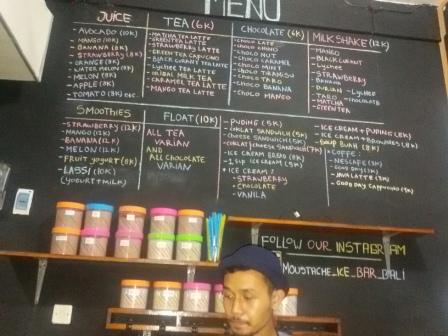 MENU
JUICE
- AVOCADO (10K)
- MANGO (10K)
- BANANA (8K)
- STRAWBERRY (8K)
- ORANGE (8K)
- WATER MELON (8K)
- MELON (8K)
- APPLE (8K)
- TOMATO (8K) etc..
TEA (6K)
- MATCHA TEA LATTE
- GREEN TEA LATTE
- STRAWBERRY LATTE
- GREEN TEA CAPPUCINO
- BLACK CURRANT TEA LATTE
- LYCHEE TEA LATTE
- MILK TEA LATTE
- CARAMEL TEA LATTE
- MANGO TEA LATTE
CHOCOLATE (6K)
- CHOCO LATE
- CHOCO
- CHOCO NUT
- CHOCO CARAMEL
- CHOCO MINT
- CHOCO TIRAMISU
- CHOCO TARO
- CHOCO BANANA
- CHOCO MANGO
MILKSHAKE (12K)
- MANGO
- BLACKCURRANT
- LYCHEE
- STRAWBERRY
- BANANA
- DURIAN - LYCHEE
- TARO - CHOCOLATE
- MATCHA
- GREEN TEA
SMOOTHIES
- STRAWBERRY (12K)
- MANGO (12K)
- BANANA (12K)
- MELON (12K)
- FRUIT YOGURT (8K)
- LASSI (10K)
(YOGURT+MILK)
FLOAT (10K)
ALL TEA
VARIAN
AND
ALL CHOCOLATE
VARIAN
- PUDING (5K)
- COKLAT SANDWICH (5K)
- CHEESE SANDWICH (5K)
- COKLAT CHEESE SANDWICH (7K)
- ICE CREAM BREAD (8K)
- 1 SLUP ICE CREAM (5K)
* ICE CREAM :
- STRAWBERRY
- CHOCOLATE
- VANILA
- ICE CREAM + PUDING (8K)
- ICE CREAM + BROWNIES (8K)
- SOUP BUAH (8K)
* COFFE :
- NESCAFE (3K)
- GOOD DAY (3K)
- JAVA LATTE (3K)
- GOOD DAY CAPPUCINO (3K)
FOLLOW OUR INSTAGRAM
MOUSTACHE_ICE_BAR_BALI